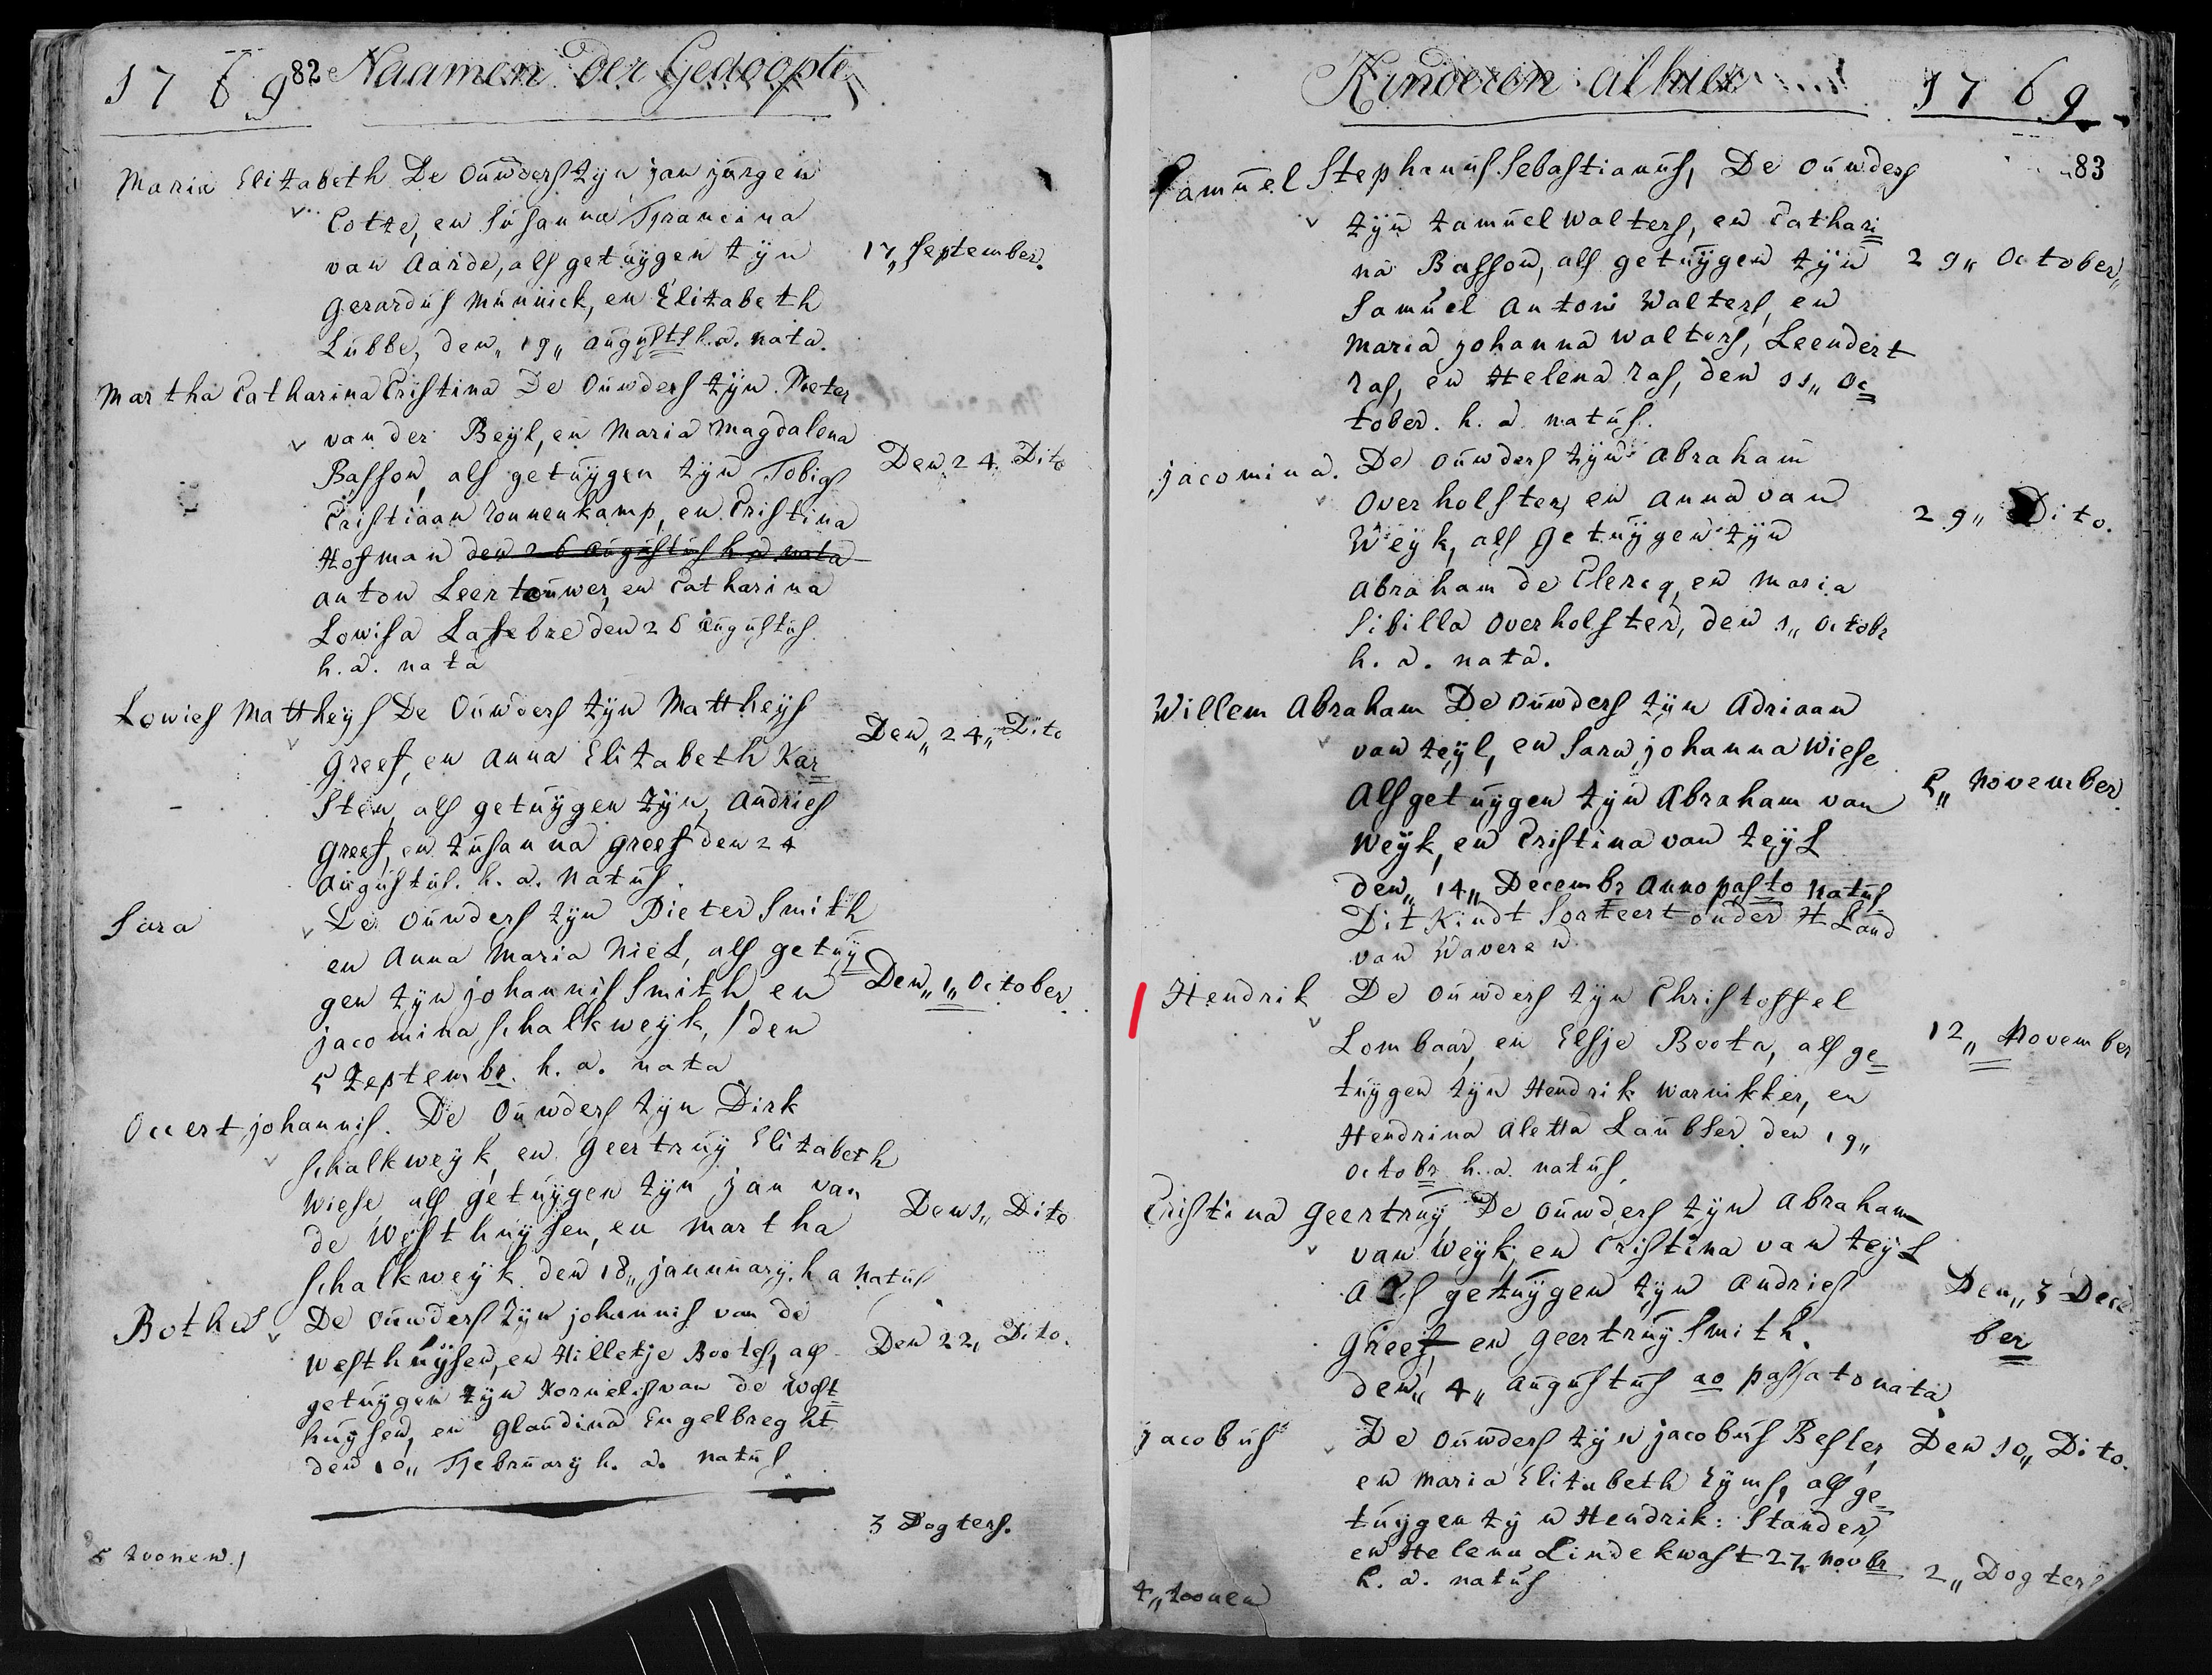 1769 82 Naamen Der Gedoopte
Maria Elizabeth De Ouwders zyn jan jurgen
Cotze, en Susanna Francina
van Aarde, als getuygen zyn 17„ September.
Gerardus Munnick, en Elizabeth
Lubbe, den„ 19„ augusts h.a. nata.
Martha Catharina Cristina De Ouwders zyn Pieter
van der Beyl, en Maria Magdalena
Basson, als getuygen zyn Tobias Den 24. Dito
Cristiaan Ronnenkamp, en Cristina
Hofman den 26 augustus h a nata
anton Leertouwer, en Catharina
Lowisa Lafebre den 26 augustus
h. a. nata
Lowies Mattheys De Ouwders zyn Mattheys
Greef, en Anna Elizabeth Kar= Den„ 24„ Dito
sten, als getuygen zyn, Andries
Greef, en Zusanna Greef den 24
augustus. h. a. natus.
Sara De ouwders zyn Pieter Smith
en Anna Maria Niel, als getuy=
gen zyn johannis Smith en Den„ 1„ October.
jacomina Schalkweyk, den
5 Zeptembr. h. a. nata
Occert johannis. De Ouwders zyn Dirk
Schalkweyk, en Geertruy Elizabeth
Wiese als getuygen zyn jan van
de Westhuysen, en Martha Den 1„ Dito
Schalkweyk den 18„ januuary. h a natus
Bothus De ouwders zyn johannis van de
Westhuysen, en Hilletje Bootes, als Den 22„ Dito.
getuygen zyn Kornelis van de West=
huysen, en Glaudina Engelbreght
den 10„ February h. a. natus.
3 Dogters.
5 zoonen.
Kinderen alhier 1769
83
Samuel Stephanus Sebastianus, De ouwders
zyn Zamuel Walters, en Cathari=
na Basson, als getuygen zyn 29„ October„
Samuel Antoni Walters, en
Maria johanna Walters, Leendert
Ras, en Helena Ras, den 11„ Oc=
tober. h. a. natus.
jacomina. De ouwders zyn Abraham
Overholster, en Anna van
Weyk, als getuygen zyn 29„ Dito.
Abraham de Clercq, en Maria
Sibilla Overholster, den 1„ Octobr
h. a. nata.
Willem Abraham De ouwders zyn Adriaan
van Zeyl, en Sara johanna Wiese
Als getuygen zyn Abraham van 5„ November.
Weyk, en Cristina van Zeyl
den„ 14„ Decembr Anno pasto natus
Dit Kindt Sorteert onder 't Land
van Waveren
Hendrik De ouwders zyn Christoffel
Lombaar, en Elsje Boota, als ge= 12„ November
tuygen zyn Hendrik Warnikker, en
Hendrina Aletta Laubser den 19„
octobr h. a. natus,
Cristina Geertruy De ouwders zyn Abraham
van Weyk, en Cristina van Zeyl
Als getuygen zyn Andries Den„ 3 Dece
Greef, en Geertruy Smith. ber
den„ 4„ augustus ao passato nata
jacobus De Ouwders zyn jacobus Besler, Den 10„ Dito.
en Maria Elizabeth Eyms, als ge=
tuygen zyn Hendrik: Stander,
en Helena Lindekwast 27„ Novbr
h. a. natus 2„ Dogters
4„ zoonen